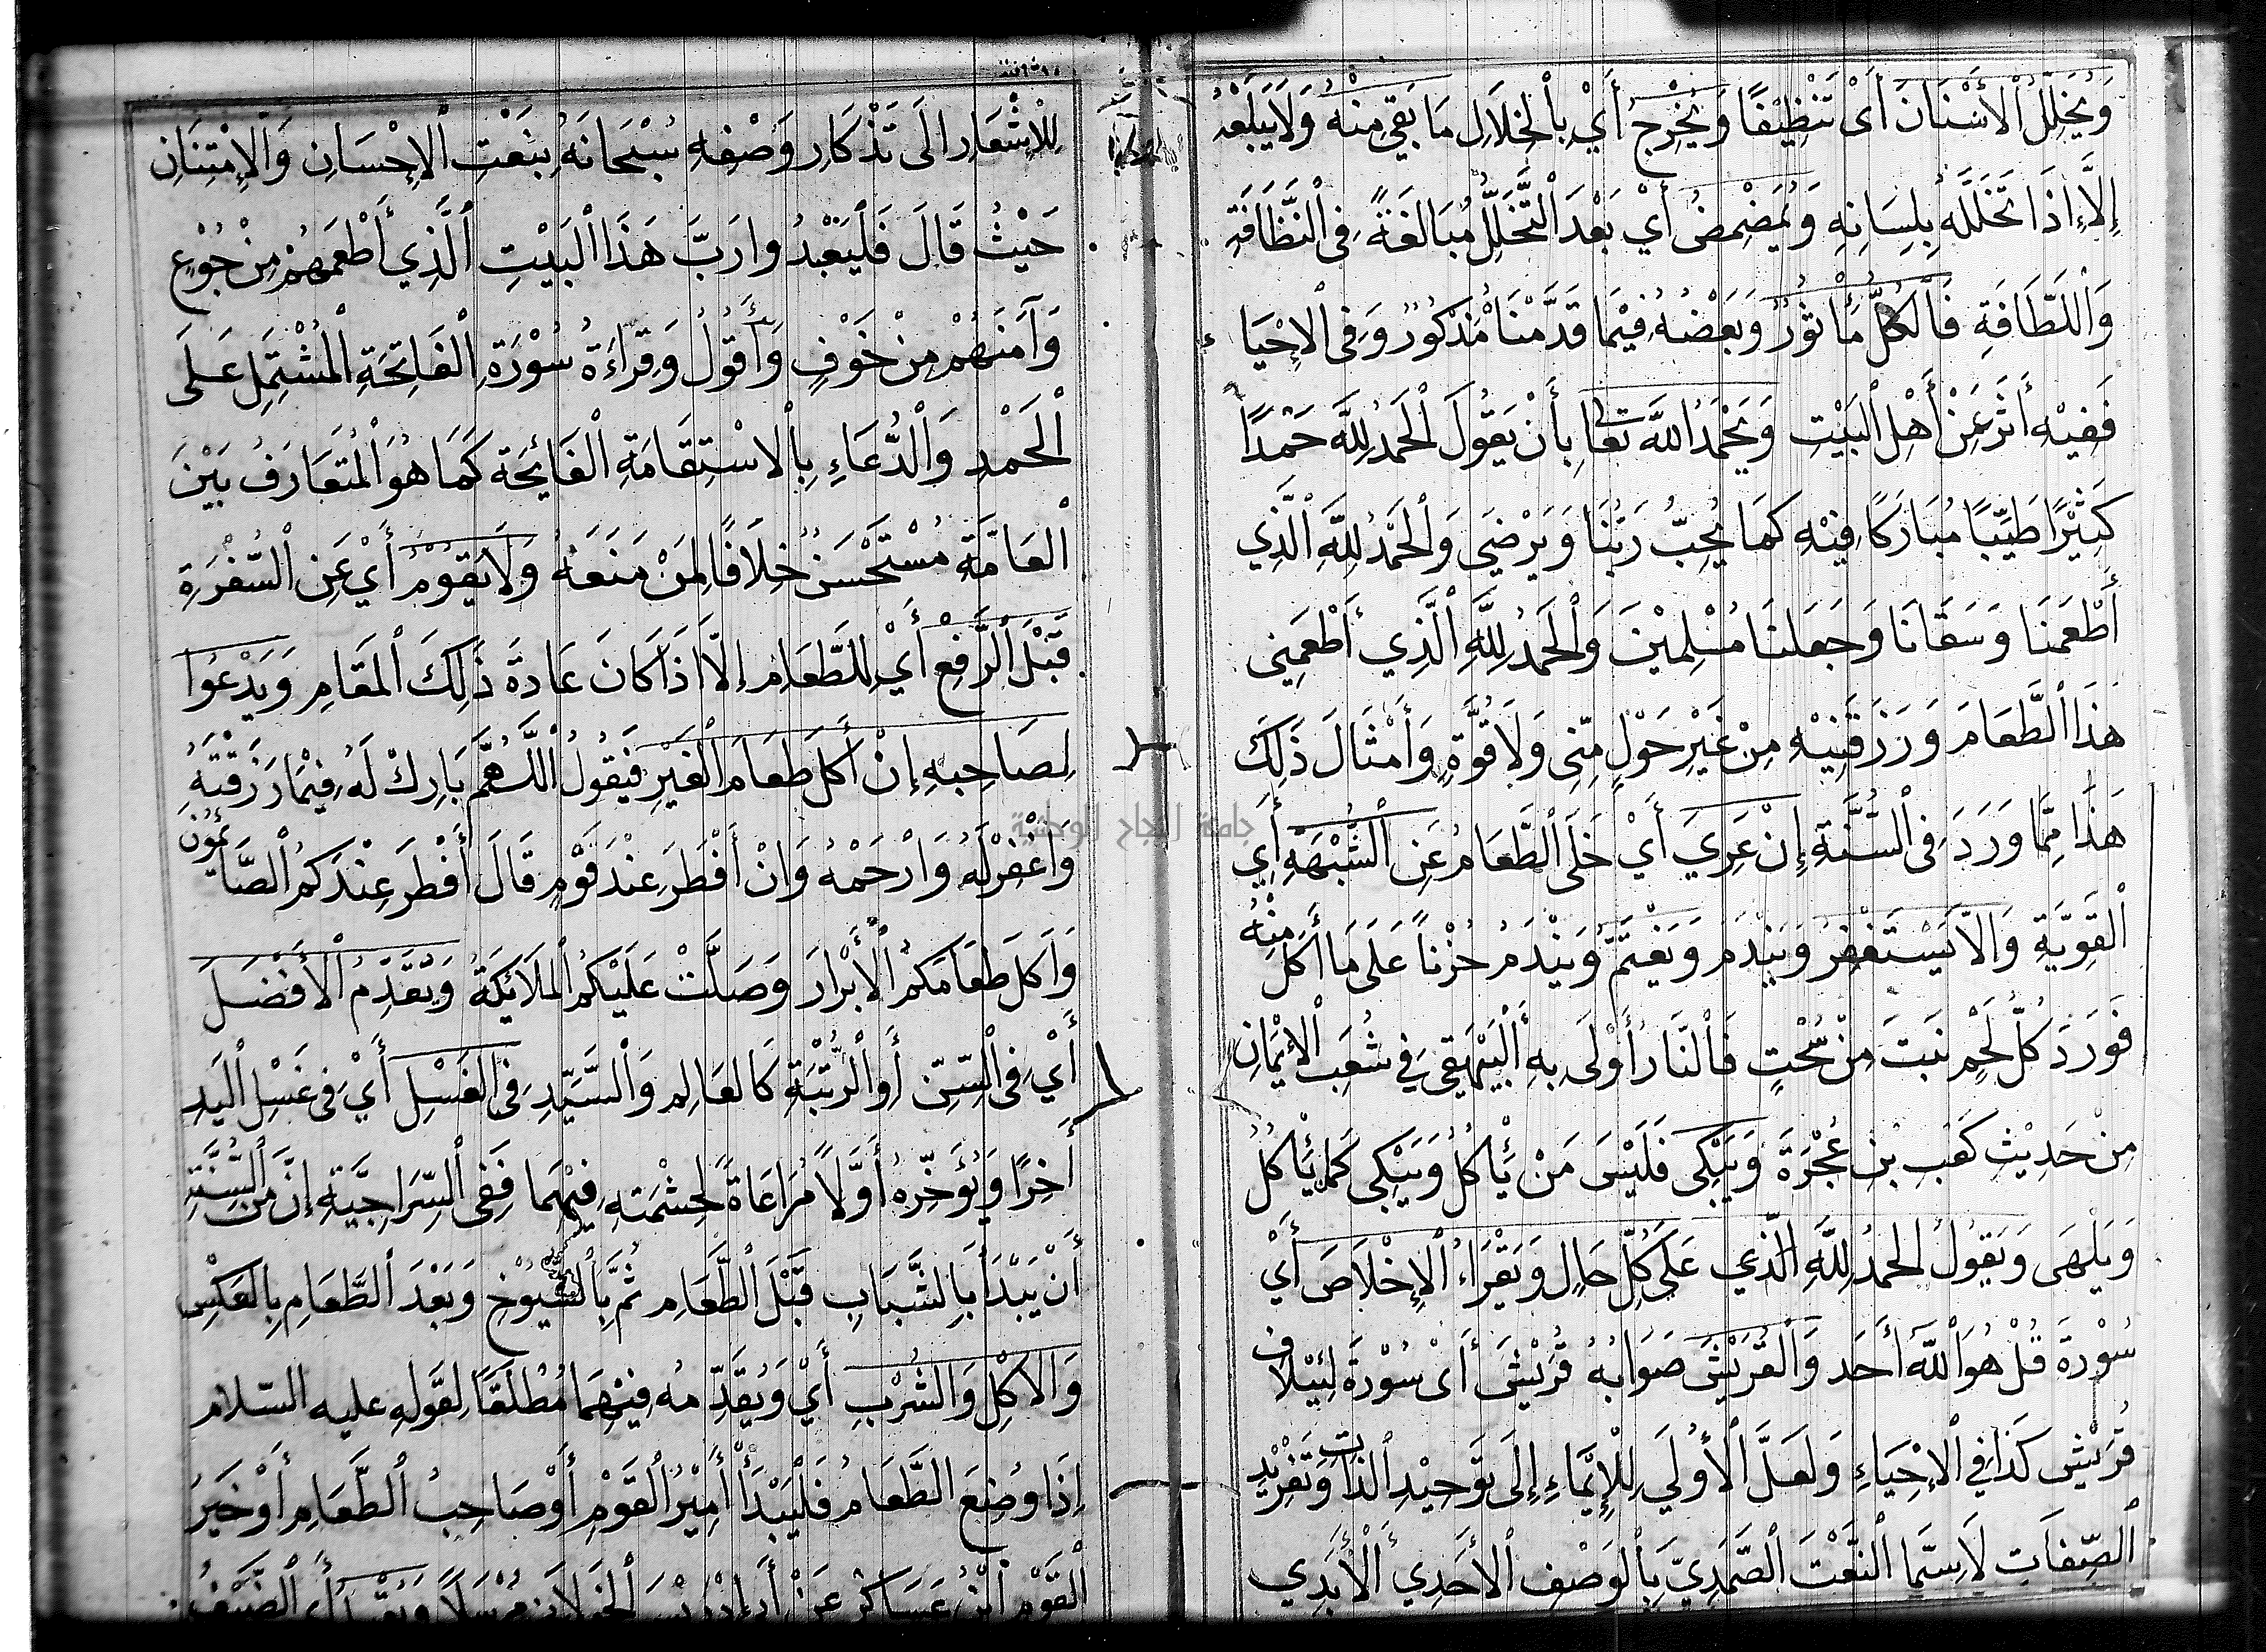 وَيُخَلِّلُ الْأَسْنَانَ أَىْ تَنْظِيْفًا وَيُخْرِجُ أَيْ بِالْخِلَالِ مَا بَقِيَ مِنْهُ وَلَا يَبْلَعُهُ
إِلَّا إِذَا تَخَلَّلَهُ بِلِسَانِهِ وَيُمَضْمِضُ أَيْ بَعْدَ التَّخَلُّلِ مُبَالَغَةً فِى النَّظَافَةِ
وَاللَّطَافَةِ فَالْكُلُّ مَأْثُورٌ وَبَعْضُهُ فِيْمَا قَدَّمْنَا مَذْكُورٌ وَفِى الْإِحْيَاءِ
فَفِيْهِ أَثَرٌ عَنْ أَهْلِ الْبَيْتِ وَيَحْمَدُ اللَّهَ تَعَا بِأَنْ يَقُولَ الْحَمْدُ لِلَّهِ حَمْدًا
كَثِيْرًا طَيِّبًا مُبَارَكًا فِيْهِ كَمَا يُحِبُّ رَبُّنَا وَيَرْضَى وَالْحَمْدُ لِلَّهِ الَّذِي
أَطْعَمَنَا وَسَقَانَا وَجَعَلَنَا مُسْلِمِيْنَ وَالْحَمْدُ لِلَّهِ الَّذِي أَطْعَمَنِى
هَذَا الطَّعَامَ وَرَزَقَنِيْهِ مِنْ غَيْرِ حَوْلٍ مِنِّى وَلَا قُوَّةٍ وَأَمْثَالَ ذَلِكَ
هَذَا مِمَّا وَرَدَ فِى السُّنَّةِ إِنْ عَرِيَ أَيْ خَلَى الطَّعَامُ عَنِ الشُّبْهَةِ أَيِ
الْقَوِيَّةِ وَإِلَّا يَسْتَغْفِرُ وَيَنْدَمُ وَيَغْتَمُّ وَيَنْدَمُ حُزْنًا عَلَى مَا أَكَلَ مِنْهُ
فَوَرَدَ كُلُّ لَحْمٍ نَبَتَ مِنْ سُحْتٍ فَالنَّارُ أَوْلَى بِهِ الْبَيْهَقِيُّ فِى شُعَبِ الْإِيْمَانِ
مِنْ حَدِيْثِ كَعْبِ بْنِ عُجْرَةَ وَيَبْكِى فَلَيْسَ مَنْ يَأْكُلُ وَيَبْكِى كَمَنْ يَأْكُلُ
وَيَلْهَى وَيَقُولُ الْحَمْدُ لِلَّهِ الَّذِي عَلَى كُلِّ حَالٍ وَيَقْرَاءُ الْإِخْلَاصَ أَيْ
سُوْرَةَ قُلْ هُوَ اللَّهُ أَحَد وَالْقُرَيْشَ صَوَابُهُ قُرَيْشَ أَىْ سُوْرَةَ لِئِيْلَافِ
قُرَيْشٍ كَذَا فِي الْإِحْيَاءِ وَلَعَلَّ الْأُوْلَى لِلْإِيْمَاءِ إِلَى تَوْحِيْدِ الذَّاتِ وَتَفْرِيْدِ
الصِّفَاتِ لَا سِيَّمَا النَّعْتَ الصَّمَدِيَّ بِالْوَصْفِ الْأَحَدِي الْأَبَدِي
لِلْإِشْعَارِ إِلَى تَذْكَارِ وَصْفِهِ سُبْحَانَهُ بِنَعْتِ الْإِحْسَانِ وَالْإِمْتِنَانِ
حَيْثُ قَالَ فَلْيَعْبُدُوا رَبَّ هَذَا الْبَيْتِ الَّذِي أَطْعَمَهُمْ مِنْ جُوْعٍ
وَآمَنَهُمْ مِنْ خَوْفٍ وَأَقُوْلُ وَقِرَاءَةُ سُوْرَةِ الْفَاتِحَةِ الْمُشْتَمِلِ عَلَى
الْحَمْدِ وَالدُّعَاءِ بِالْاسْتِقَامَةِ الْفَايِحَة كَمَا هُوَ الْمُتَعَارَفُ بَيْنَ
الْعَامَّةِ مُسْتَحْسَنٌ خِلَافًا لِمَنْ مَنَعَهُ وَلَا يَقُوْمُ أَيْ عَنِ السُّفْرَةِ
قَبْلَ الرَّفْعِ أَيْ لِلطَّعَامِ إِلَّا إِذَا كَانَ عَادَةَ ذَلِكَ الْمَقَامِ وَيَدْعُوا
لِصَاحِبِهِ إِنْ أَكَلَ طَعَامَ الْغَيْرِ فَيَقُولُ اللَّهُمَّ بَارِكْ لَهُ فِيْمَا رَزَقْتَهُ
وَاغْفِرْ لَهُ وَارْحَمْهُ وَإِنْ أَفْطَرَ عِنْدَ قَوْمٍ قَالَ أَفْطَرَ عِنْدَكُمُ الصَّائِمُوْنَ
وَأَكَلَ طَعَامَكُمُ الْأَبْرَارُ وَصَلَّتْ عَلَيْكُمُ الْمَلَائِكَةُ وَيُقَدِّمُ الْأَفْضَلَ
أَيْ فِى السِّنِّ أَوِ الرُّتْبَةِ كَالْعَالِمِ وَالسَّيِّدِ فِى الْغَسْلِ أَيْ فِى غَسْلِ الْيَدِ
أَخِرًا وَيُؤَخِّرُهُ أَوَّلًا مُرَاعَاةً لِحِشْمَتِهِ فِيْهِمَا فَفِى السِّرَاجِيَّةِ إِنَّ مِنَ السُّنَّةِ
أَنْ يَبْدَأَ بِالشَّبَابِ قَبْلَ الطَّعَامِ ثُمَّ بِالشُّيُوْخِ وَبَعْدَ الطَّعَامِ بِالْعَكْسِ
وَالْأَكْلِ وَالشُّرْبِ أَيْ وَيُقَدِّمُهُ فِيْهِمَا مُطْلَقًا لِقَوْلِهِ عليه السلام
إِذَا وُضِعَ الطَّعَامُ فَلْيَبْدَأْ أَمِيْرُ الْقَوْمِ أَوْ صَاحِبُ الطَّعَامِ أَوْ خَيْرُ
الْقَوْمِ ابْنُ عَسَاكِرَ عَنْ أَبِي إِدْرِيْسَ الْخَوْلَانِي مُرْسَلًا
جامعة النجاح الوطنية